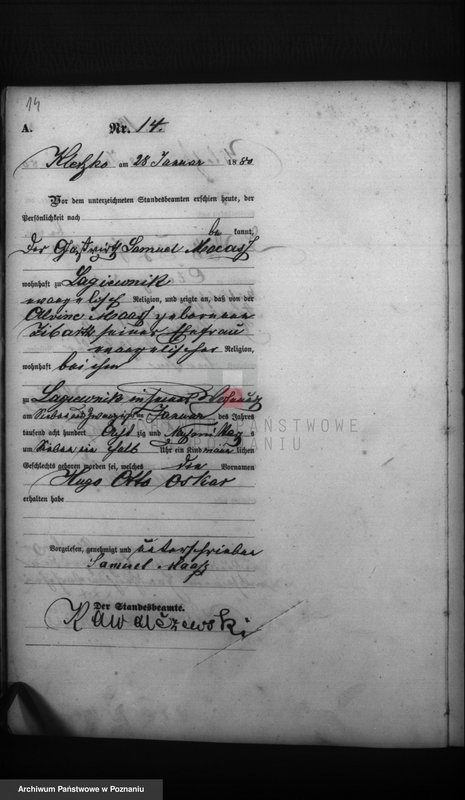 14
A.
Nr. 14.
Kletzko am 28 Januar 1880
Vor dem unterzeichneten Standesbeamten erschien heute, der
Persönlichkeit nach
be kannt,
der Gastwirth Samuel Maass
wohnhaft zu Lagiewnik
evangelisch Religion, und zeigte an, daß von der
Maass geborenen
seiner Ehefrau
evangelischer Religion,
wohnhaft bei ihm
zu Lagiewnik in seiner Wohnung
am Sieben und Zwanzigsten Januar des Jahres
tausend acht hundert Acht zig und Nachmittag s
um Sieben ein halb Uhr ein Kind männ lichen
Geschlechts geboren worden sei, welches die Vornamen
Hugo Otto Oskar
erhalten habe
Vorgelesen, genehmigt und unterschrieben
Samuel Maass
Der Standesbeamte.
ARCHIWUM PAŃSTWOWE
W POZNANIU
Archiwum Państwowe w Poznaniu